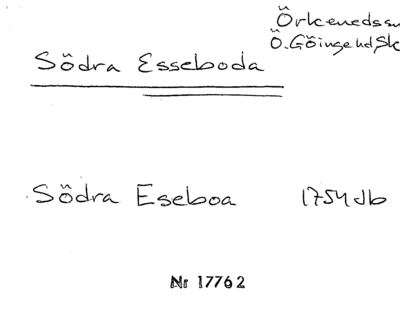 Örkeneds sn
Ö. Göinge hd, Sk
Södra Esseboda
Södra Eseboa 1754 Jb
Nr 17762